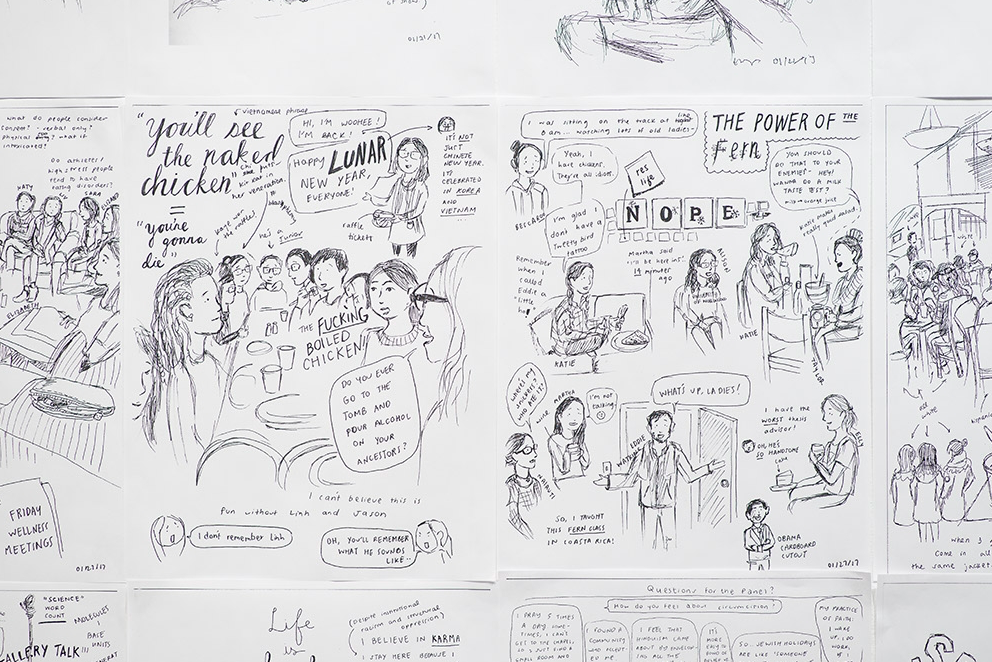 01/21/17
what do people consider
consent? - verbal only?
physical
what if
intoxicated?
Do athletes/
high stress people
tend to have
eating disorders?
KATY
SARA
ELIZABETH
FRIDAY
WELLNESS
MEETINGS
01/27/17
vietnamese phrase
"You'll see
the naked
chicken"
=
"you're
gonna
die"
HI, I'M WOOHEE!
I'M BACK!
HAPPY LUNAR
NEW YEAR,
EVERYONE!
IT'S NOT
JUST
CHINESE
NEW YEAR.
IT'S
CELEBRATED
IN KOREA
AND
VIETNAM
raffle
tickets
he's a
junior
THE FUCKING
BOILED
CHICKEN!!
DO YOU EVER
GO TO THE
TOMB AND
POUR ALCOHOL
ON YOUR
ANCESTORS?
I can't believe this is
fun without Linh and Jason
I don't remember Linh
OH, YOU'LL REMEMBER
WHAT HE SOUNDS
LIKE..
01/27/17
I was sitting on the track at like
8am... watching lots of old ladies-
THE POWER OF THE
Fern
Yeah, I
have chickens.
They're all idiots.
BECCA
res
life
NOPE
YOU SHOULD
DO THAT TO YOUR
ENEMIES - HEY!
WANNA DO A MILK
TASTE TEST?
I'm glad I
don't have a
Tweety bird
tattoo
Remember
when I
called
Eddie a
"little
ho"
KATIE
Martha said
"I'll be here in 5"
14 minutes
ago
ALLISON
Katie makes
really good salad
KATIE
TAYLOR
WHERE'S MY
SNICKERS?
WHO ATE IT?
MARTHA
I'm not
talking
WHAT'S UP, LADIES!
EDDIE
WATKINS
SO, I TAUGHT
THIS FERN CLASS
IN COASTA RICA!
I have the
WORST thesis
advisor!
OH, HE'S
SO HANDSOME
cake
OBAMA
CARDBOARD
CUTOUT
01/27/17
WHITE
ALL
WHITE
when 3
come in all
the same jacket
"SCIENCE"
WORD
COUNT
MOLECULES
1
BASE
PAIRS
GALLERY TALK
Life
is
(Despite institutional
racism and structural
oppression)
I BELIEVE IN KARMA
I STAY HERE BECAUSE I
Questions for the Panel?
How do you feel about circumcision?
I PRAY 5 TIMES
A DAY. SOME-
TIMES, I CAN'T
GET TO THE CHAPEL,
SO I JUST FIND A
SMALL ROOM AND
I FOUND A
COMMUNITY
WHO ACCEPT-
ED ME.
I FEEL THAT
HINDUISM CAME
ABOUT BY ENVELOP-
ING ALL THE
IT'S
MORE
EASY TO
SO JEWISH HOLIDAYS
ARE LIKE "SOMEONE
MY PRACTICE
OF FAITH:
I WAKE
UP. I DO
WORK. IF I